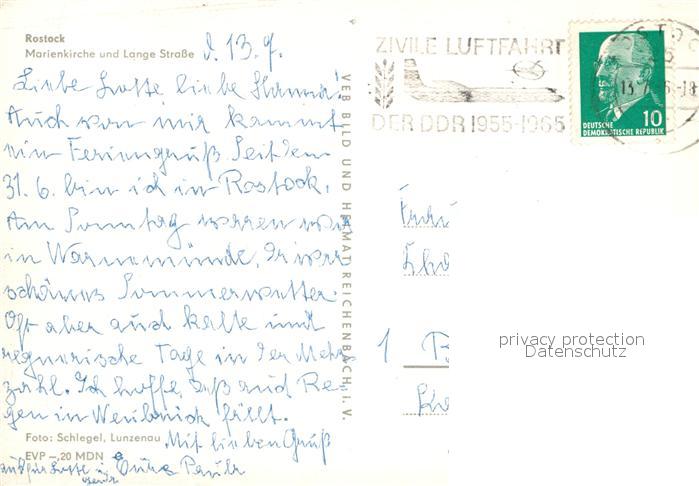 Rostock
Marienkirche und Lange Straße
d. 13. 7.
Liebe Lotte liebe Hanna!
Auch von mir kommt
ein Feriengruß. Seit dem
31. 6. bin ich in Rostock.
Am Sonntag waren wir
in Warnemünde. Es war
schönes Sommerwetter.
Oft aber auch kalte und
regnerische Tage in der Mehr
zahl. Ich hoffe, daß auch Re-
gen in fällt.
Foto: Schlegel, Lunzenau
Mit lieben Gruß
EVP –,20 MDN
Eure Paula
auch für Lotte
VEB BILD UND HEIMAT REICHENBACH I. V.
ZIVILE LUFTFAHRT
DER DDR 1955-1965
DEUTSCHE
DEMOKRATISCHE REPUBLIK 10
1
privacy protection
Datenschutz